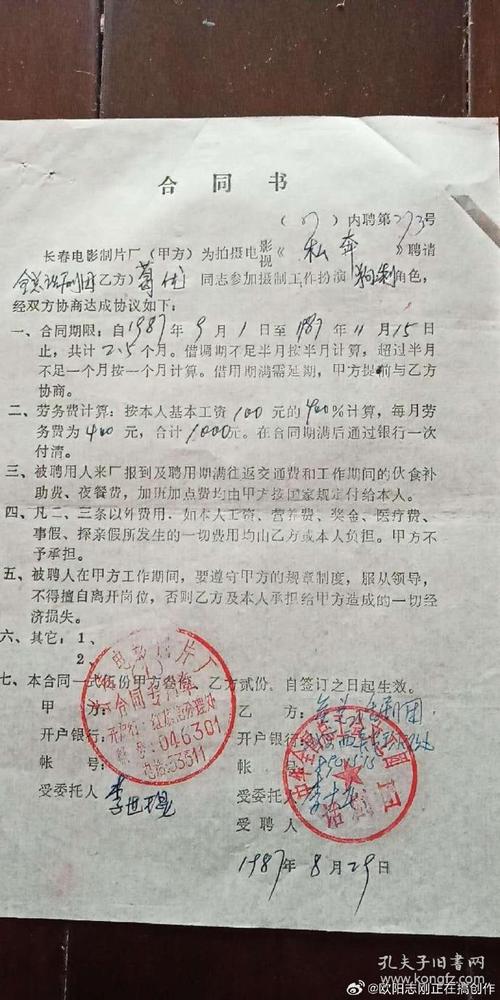 合同书
(87)内聘第273号
长春电影制片厂（甲方）为拍摄电影视《私奔》聘请
全总话剧团（乙方）葛优同志参加摄制工作扮演 角色，
经双方协商达成协议如下：
一、合同期限：自1987年9月1日至1987年11月15日
止，共计2.5个月。借调期不足半月按半月计算，超过半月
不足一个月按一个月计算。借用期满需延期，甲方提前与乙方
协商。
二、劳务费计算：按本人基本工资100元的400%计算，每月劳
务费为400元，合计1000元。在合同期满后通过银行一次
付清。
三、被聘用人来厂报到及聘用期满往返交通费和工作期间的伙食补
助费、夜餐费，加班加点费均由甲方按国家规定付给本人。
四、凡二、三条以外费用．如本人工资、营养费、奖金、医疗费、
事假、探亲假所发生的一切费用均由乙方或本人负担。甲方不
予承担。
五、被聘人在甲方工作期间，要遵守甲方的规章制度，服从领导，
不得擅自离开岗位，否则乙方及本人承担给甲方造成的一切经
济损失。
六、其它：1、
2、
七、本合同一式伍份甲方叁份，乙方贰份。自签订之日起生效。
甲方：
乙方：全总话剧团
开户银行：
开户银行：
帐号：
帐号：
受委托人 李世
受委托人
受聘人
电影制片厂
合同专用章
开户行：红旗街办理处
帐号：046301
电话：53511
中华全国总工会
话剧团
1987年8月29日
孔夫子旧书网
@欧阳志刚正在搞创作